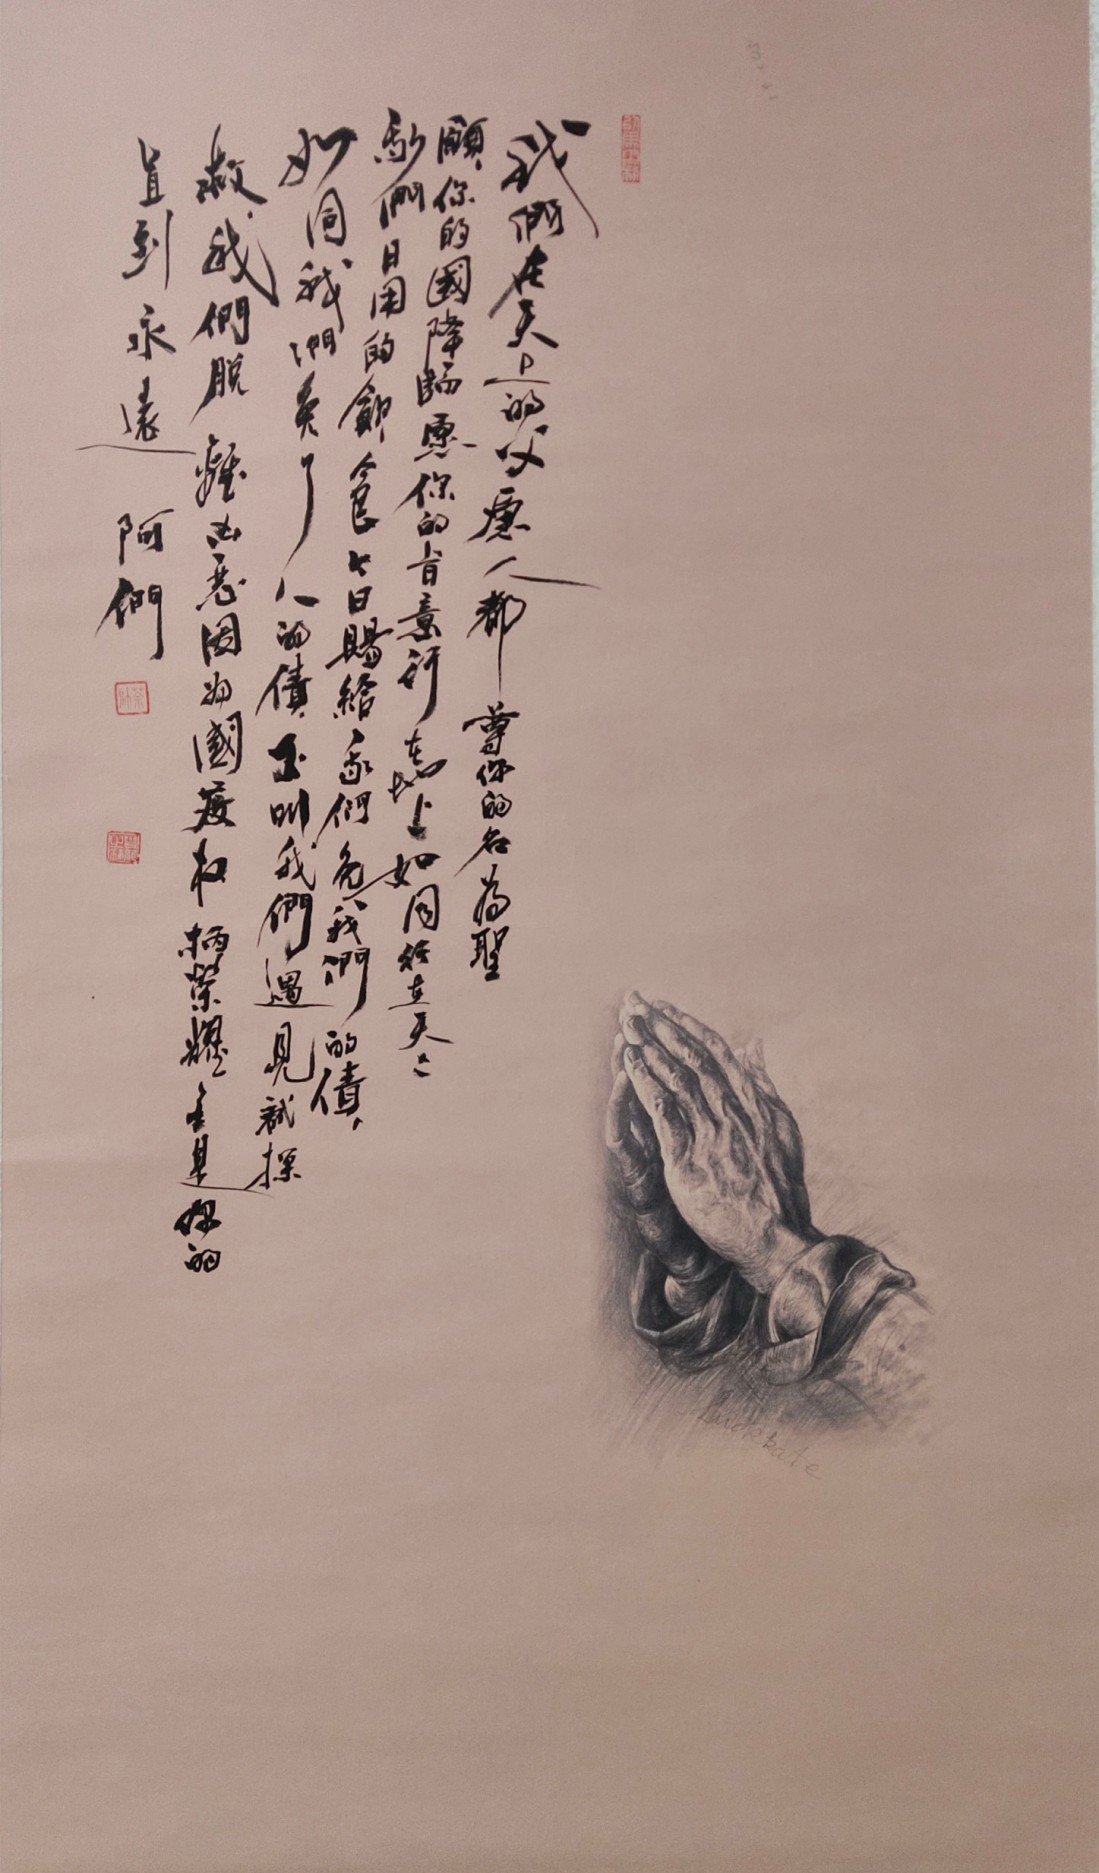 我們在天上的父愿人都尊你的名為聖
願你的國降臨愿你的旨意行在地上如同行在天上
我們日用的飲食今日賜給我們免我們的債
如同我們免了人的債不叫我們遇見試探
救我們脫離凶惡因為國度权柄榮耀全是你的
直到永遠
阿們